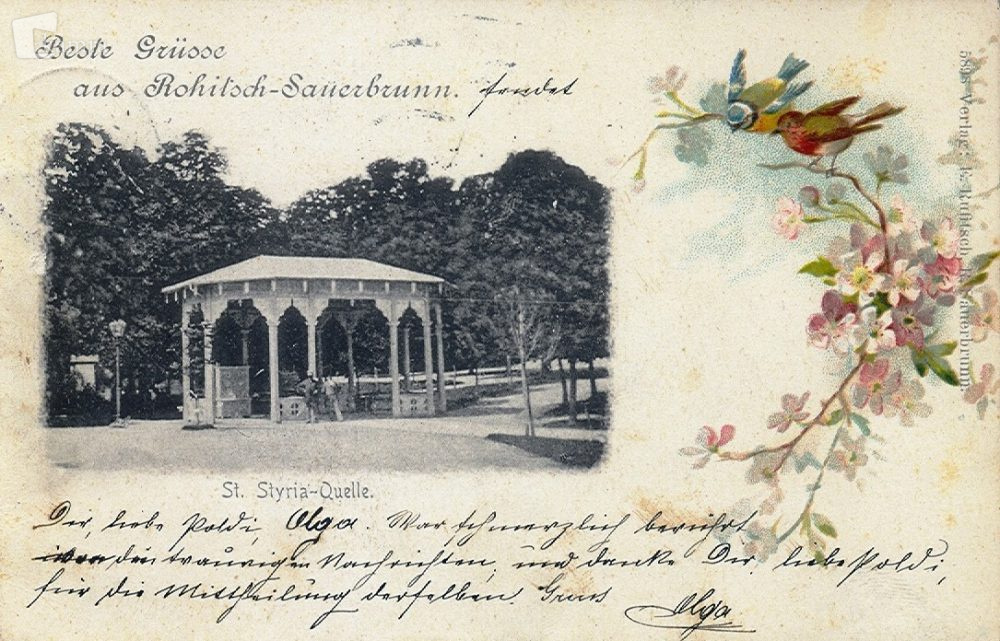 Beste Grüsse
aus Rohitsch-Sauerbrunn. sendet
St. Styria-Quelle.
Dir, liebe Poldi, Olga. War schmerzlich berührt
von den traurigen Nachrichten, und danke Dir, liebe Poldi,
für die Mittheilung derselben. Gruss
Olga
5898 Verlag
Sauerbrunn.